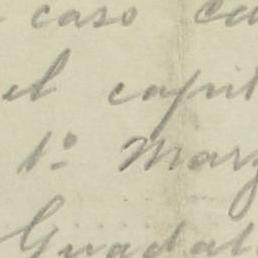 caso
el capit
1º Marz
Guadal